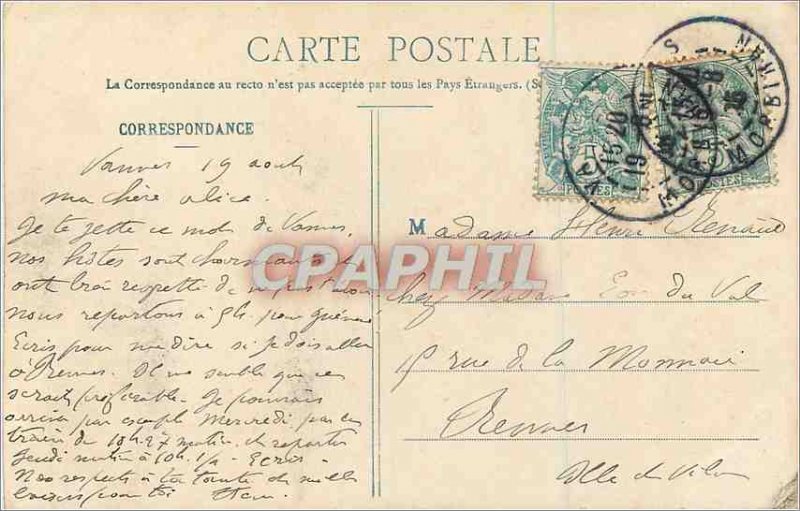 CARTE POSTALE
La Correspondance au recto n'est pas acceptée par tous les Pays Étrangers. (S
CORRESPONDANCE
Vannes 19 août
ma chère alice.
Je te jette ce mot de Vannes.
Nos hôtes sont charmants
ont bien regretté de
nous repartons à 5h. pour
Ecris pour me dire si je dois aller
à Rennes. Il me semble que ce
serait préférable. Je pourrais
arriver par exemple Mercredi par un
train de 10h.27 matin et repartir
Jeudi matin à 10h. 1/2 - Ecris -
Nos respects à ta tante de mille
baisers pour toi
Madame Henri Renaud
chez Madame du Val
5 rue de la Monnaie
Rennes
Ille et Vilaine
CPAPHIL
VANNES
MORBIHAN
15 20
19
5
POSTES
5
POSTES